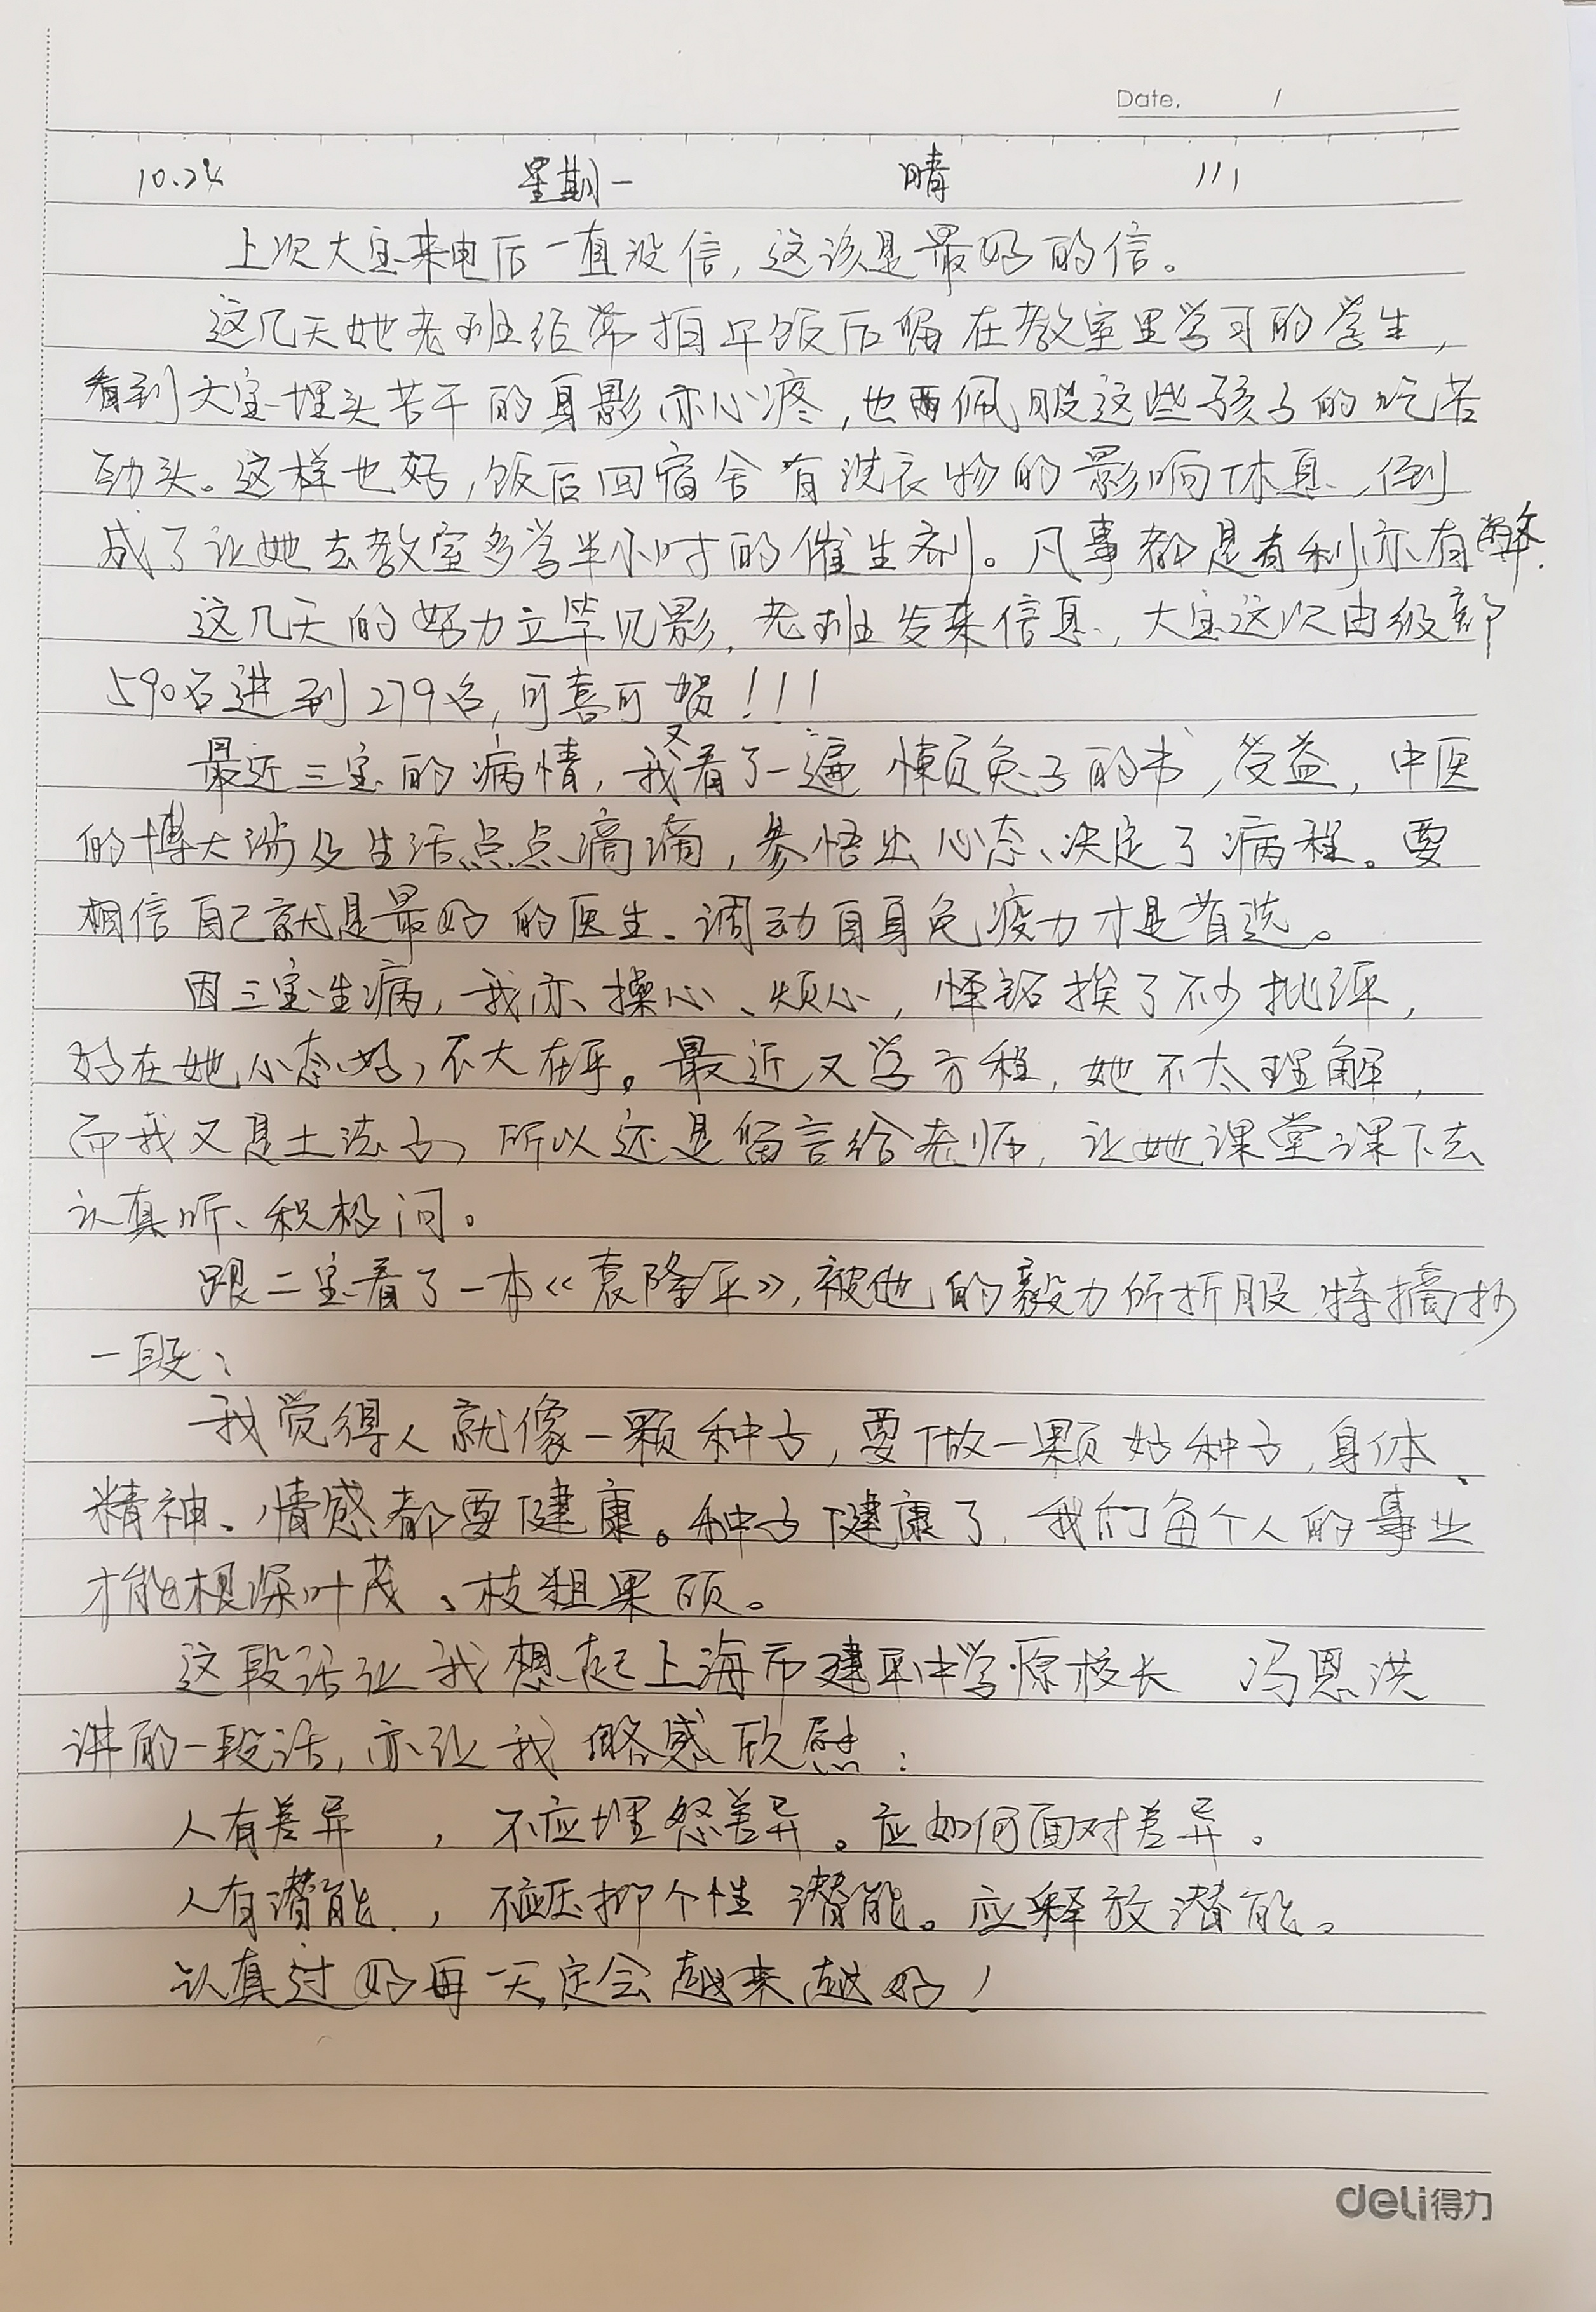 Date. /
10.24 星期一 晴 111
上次大宝来电后一直没信，这该是最好的信。
这几天她老班经常拍午饭后留在教室里学习的学生，
看到大宝埋头苦干的身影亦心疼，也佩服这些孩子的吃苦
劲头。这样也好，饭后回宿舍有洗衣物的影响休息，倒
成了让她去教室多学半小时的催生剂。凡事都是有利亦有弊.
这几天的努力立竿见影，老班发来信息，大宝这次由级部
590名进到279名，可喜可贺！！！
最近三宝的病情，我又看了一遍懒兔子的书，受益，中医
的博大涉及生活点点滴滴，参悟出心态、决定了病程。要
相信自己就是最好的医生、调动自身免疫力才是首选。
因三宝生病，我亦操心、烦心，怿铭挨了不少批评，
好在她心态好，不大在乎。最近又学方程，她不太理解，
而我又是土法子，所以还是留言给老师，让她课堂课下去
认真听、积极问。
跟二宝看了一本《袁隆平》，被他的毅力所折服，特摘抄
一段：
我觉得人就像一颗种子，要做一颗好种子，身体、
精神、情感都要健康。种子健康了，我们每个人的事业
才能根深叶茂、枝粗果硕。
这段话让我想起上海市建平中学原校长 冯恩洪
讲的一段话，亦让我略感欣慰：
人有差异 ，不应埋怨差异。应如何面对差异。
人有潜能 ，不应压抑个性潜能。应释放潜能。
认真过好每一天，定会越来越好！
deli得力